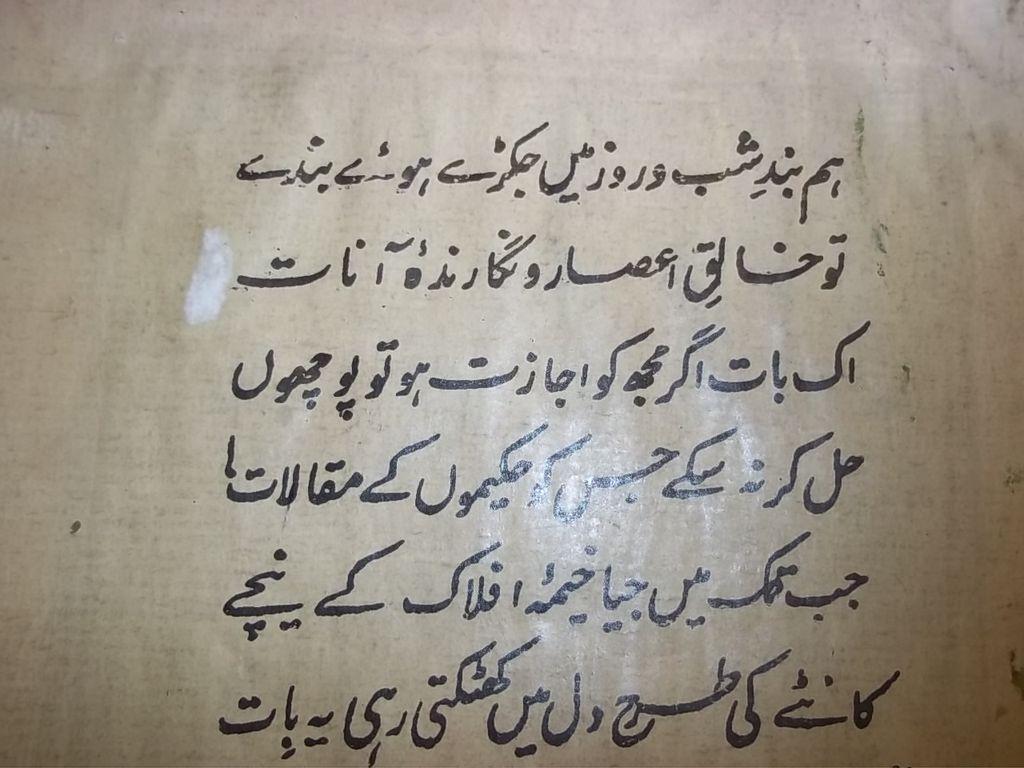 ہم بندِ شب و روز میں جکڑے ہوئے بندے
تو خالقِ اعصار و نگارندۂ آنات
اک بات اگر مجھ کو اجازت ہو تو پوچھوں
حل کر نہ سکے جس کو حکیموں کے مقالات!
جب تک میں جیا خیمۂ افلاک کے نیچے
کانٹے کی طرح دل میں کھٹکتی رہی یہ بات